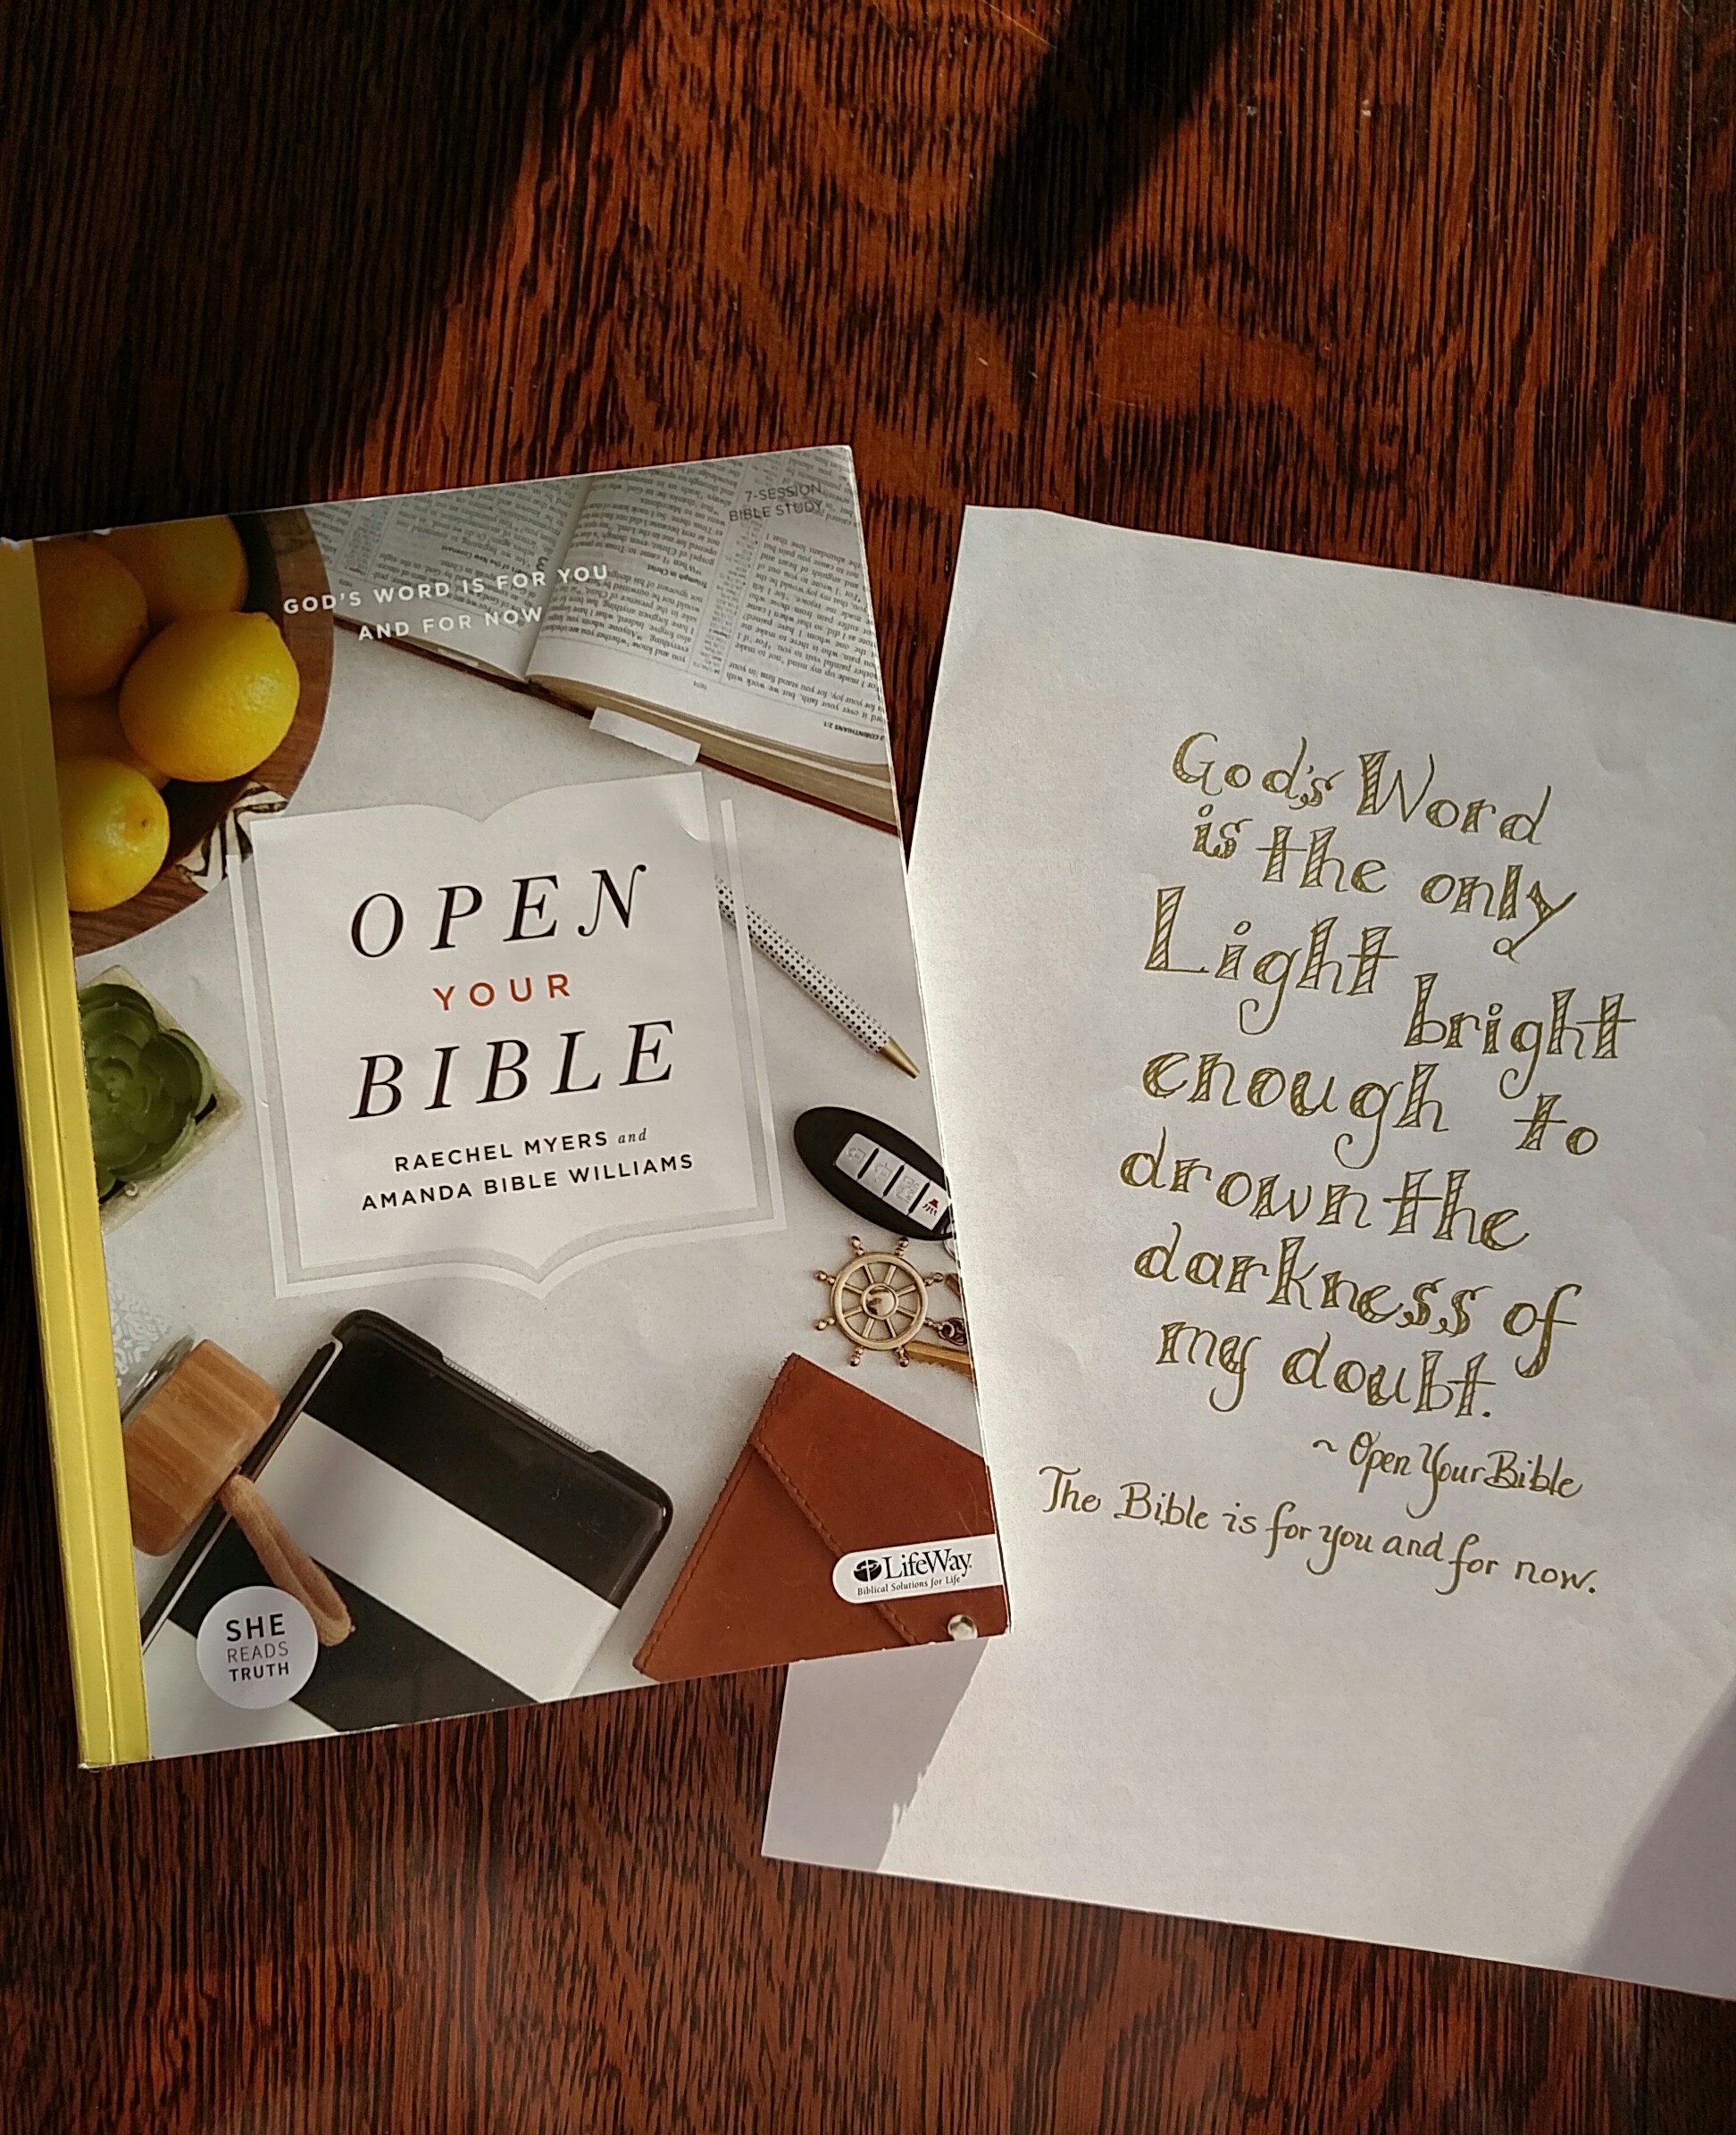 7-SESSION
BIBLE STUDY
GOD'S WORD IS FOR YOU
AND FOR NOW
OPEN
YOUR
BIBLE
RAECHEL MYERS and
AMANDA BIBLE WILLIAMS
LifeWay
Biblical Solutions for Life
SHE
READS
TRUTH
God's Word
is the only
Light bright
enough to
drown the
darkness of
my doubt.
~ Open Your Bible
The Bible is for you and for now.